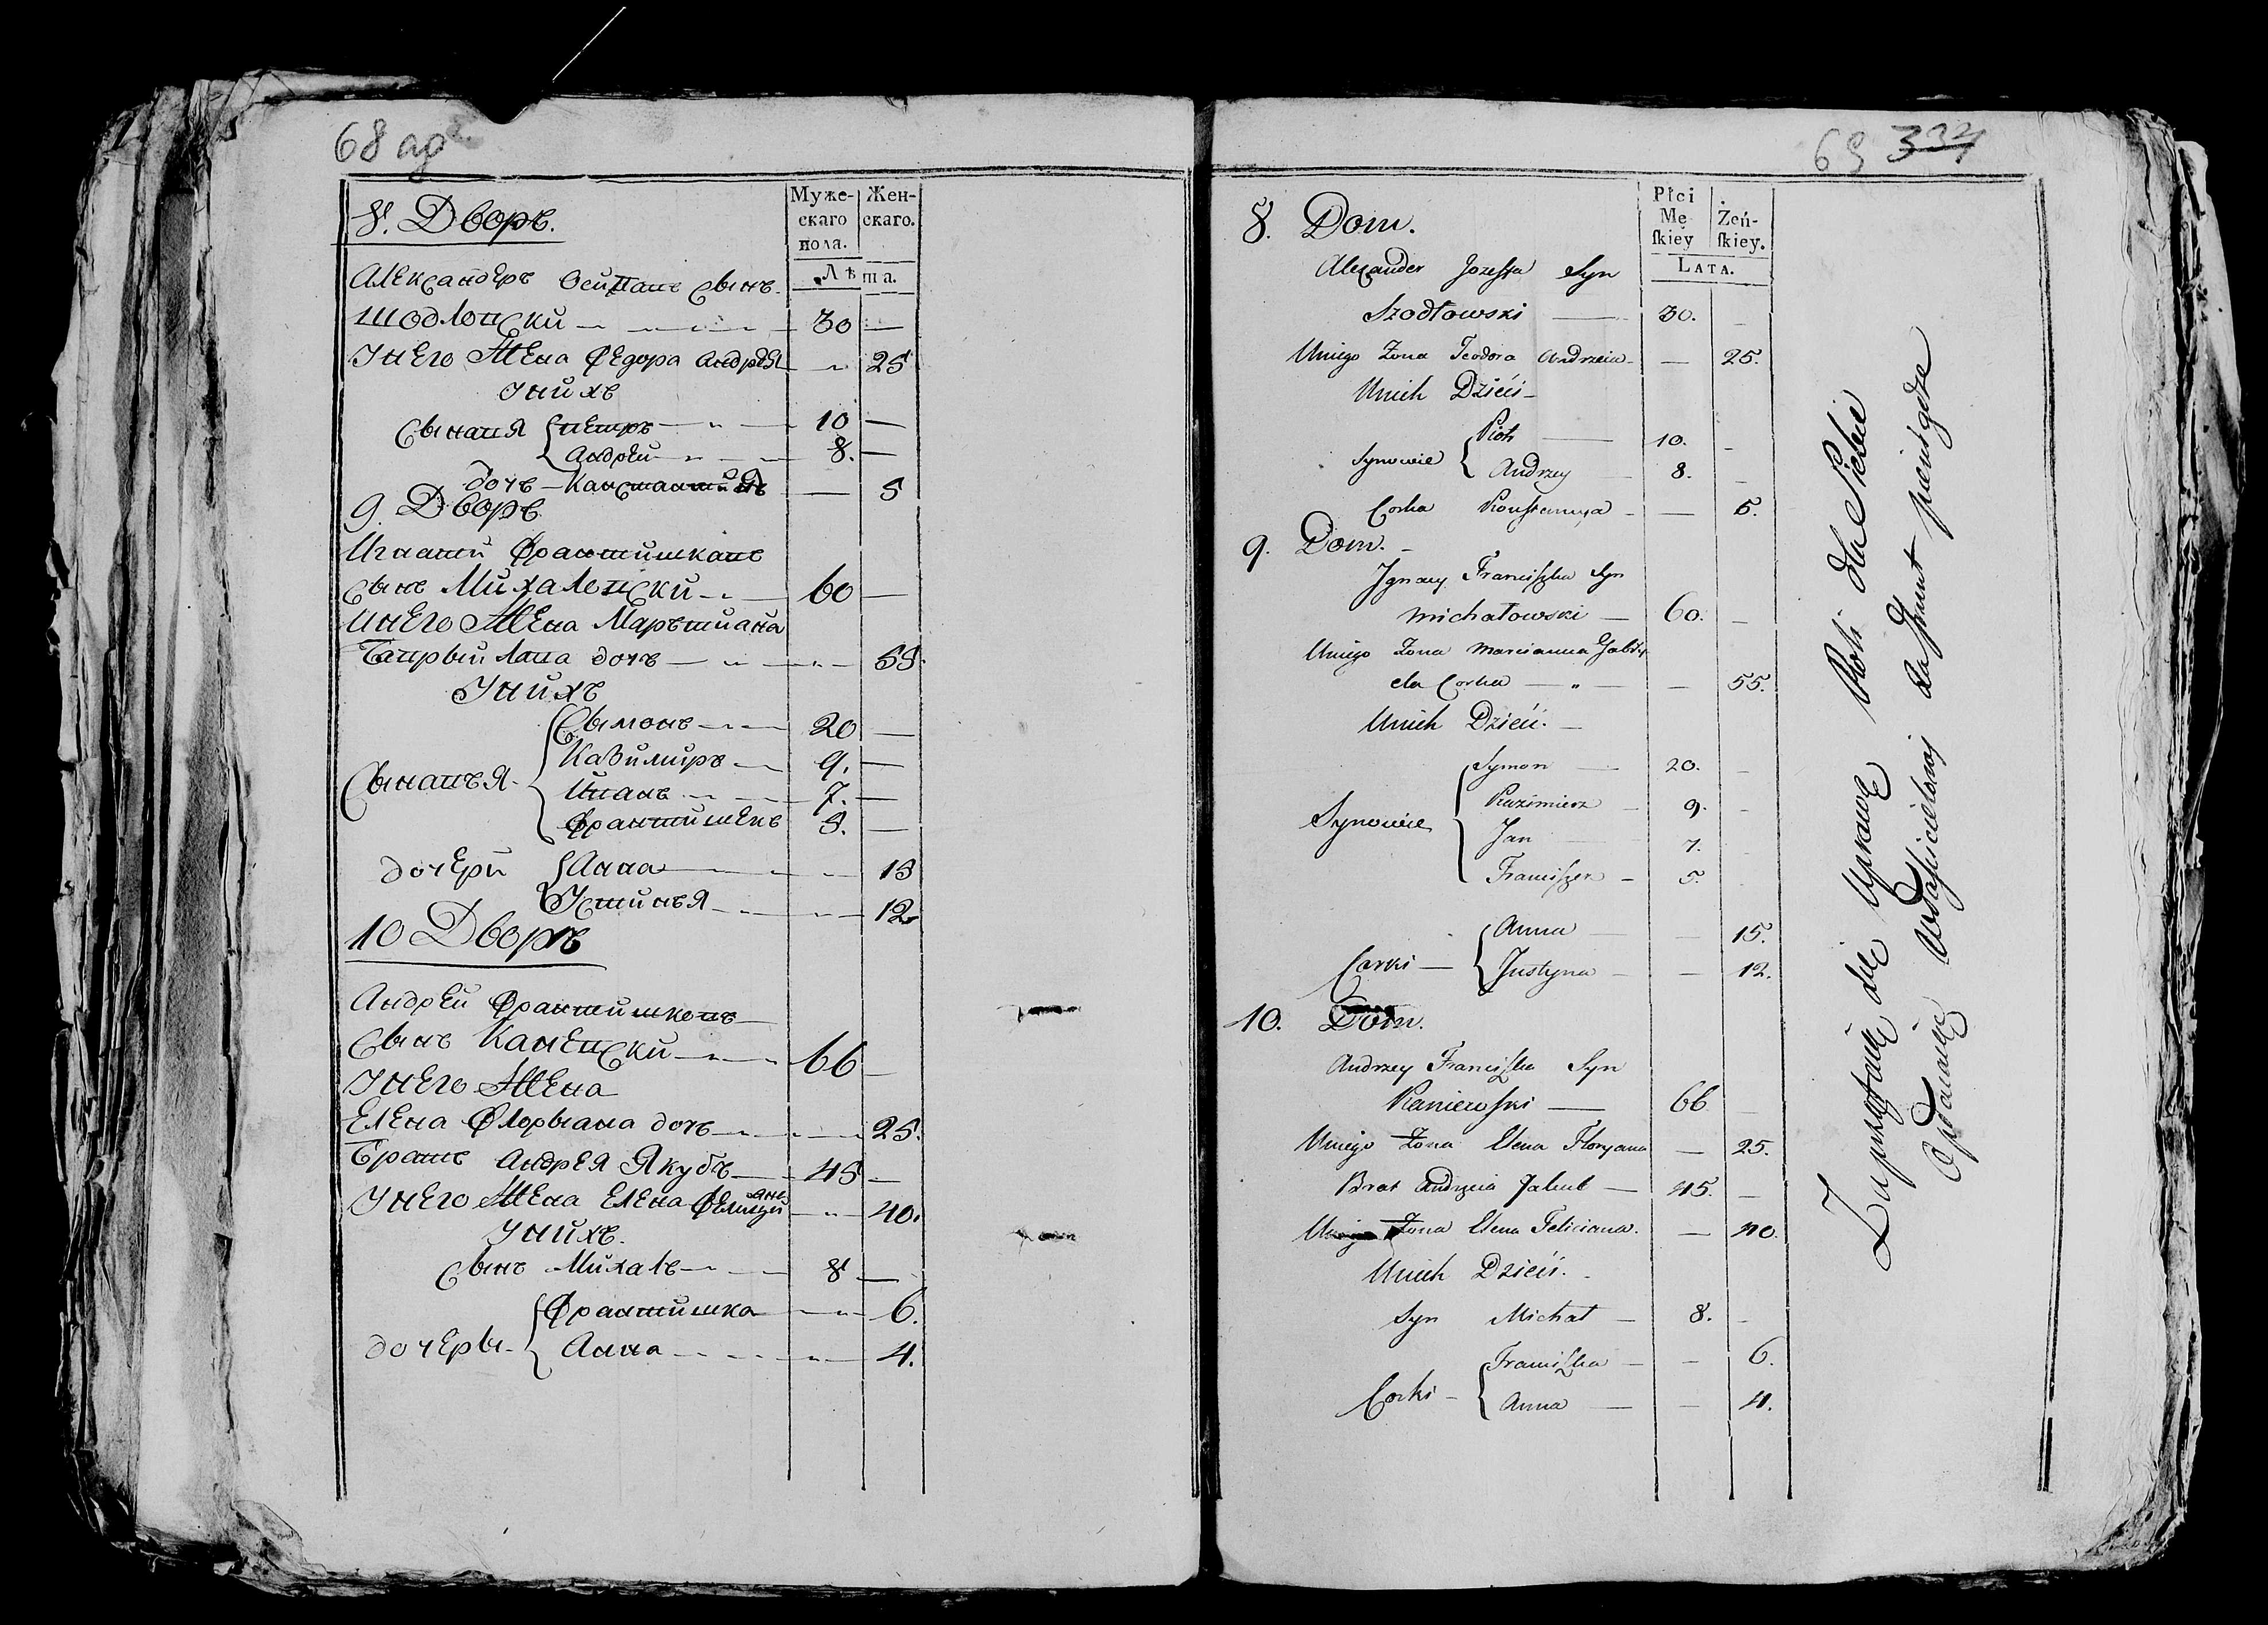 68 ад
8. Дворъ.
Муже-
скаго
пола.
Жен-
скаго.
Лѣта.
Александеръ Осипавъ Сынъ
Шодловски 30 —
Унего Жена Федора Андрея — 25
Унихъ
Сыновя Петръ 10 —
Андрей 8. —
дочь — 5
9. Дворъ
Игнатй Франтишкавъ
Сынъ Михалевски 60 —
Инего Жена Марътиана
Гаврыйлава дочъ — 55.
Унихъ
Сынавъя
Сымонъ 20 —
Казимиръ 9. —
Иванъ 7. —
Франтишекъ 5. —
дочери
Анна — 15
Устинья — 12
10 Дворъ
Андрей Франтишковъ
Сынъ Каневски 66 —
Унего Жена
Елена Флорыана дочъ — 25.
Братъ Андрея Якубъ 45 —
Унего Жена Елена — 40.
Унихъ.
Сынъ Михалъ 8 —
дочеры
Франтишка — 6.
Анна — 4.
69 334
Płci
Mę
ſkiey
Żeń-
ſkiey.
LATA.
8. Dom.
Alexander Jozeffa Syn
Szodłowski — 30. —
Uniego Zona Teodora Andrzeia — 25.
Unich Dzieci —
Synowie
Piotr — 10. —
Andrzey 8. —
Corka Konstancya — — 5.
9. Dom. —
Ignacy Franciszka Syn
Michałowski — 60. —
Uniego Zona Marcianna Gabry
ela Corka — „ — — 55.
Unich Dzieci. —
Synowie
Symon — 20. —
Kazimierz — 9. —
Jan — 7. —
Franciszek — 5. —
Corki —
Anna — — 15.
Justyna — — 12.
10. Dom.
Andrzey Franciszka Syn
Kaniewski — 66 —
Uniego Zona Elena Floryana — 25.
Brat Andrzeia Jakub — 45. —
Uniego Zona Elena Feliciana. — 40.
Unich Dzieci. —
Syn Michał — 8. —
Corki —
Franciszka — — 6.
Anna — — 4.
Uprawę Roli dla Siebie
Opłacaiąc pieniądze